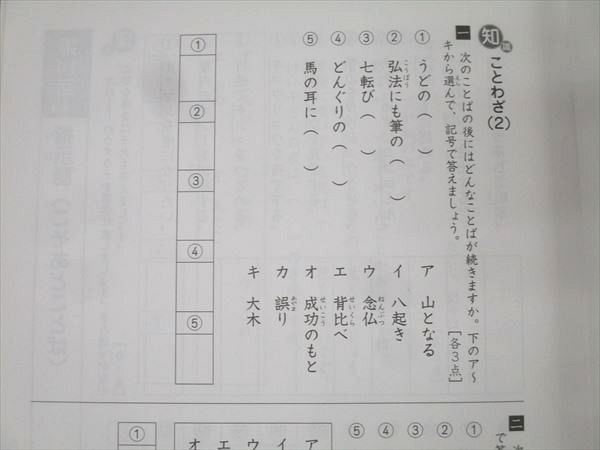 知識 ことわざ(2)
一 次のことばの後にはどんなことばが続きますか。下のア〜
キから選んで、記号で答えましょう。
[各3点]
① うどの( )
② 弘法にも筆の( )
③ 七転び( )
④ どんぐりの( )
⑤ 馬の耳に( )
ア 山となる
イ 八起き
ウ 念仏
エ 背比べ
オ 成功のもと
カ 誤り
キ 大木
①
②
③
④
⑤
二
①
②
③
④
⑤
ア
イ
ウ
エ
オ
①